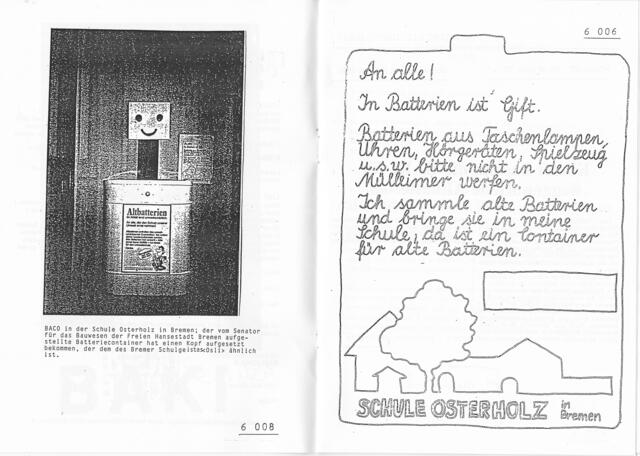 Altbatterien
BACO in der Schule Osterholz in Bremen; der vom Senator
für das Bauwesen der Freien Hansestadt Bremen aufge-
stellte Batteriecontainer hat einen Kopf aufgesetzt
bekommen, der dem des Bremer Schulgeistes«Osli» ähnlich
ist.
6 008
6 006
An alle!
In Batterien ist Gift.
Batterien aus Taschenlampen,
Uhren, Hörgeräten, Spielzeug
u.s.w. bitte nicht in den
Mülleimer werfen.
Ich sammle alte Batterien
und bringe sie in meine
Schule, da ist ein Container
für alte Batterien.
SCHULE OSTERHOLZ in
Bremen